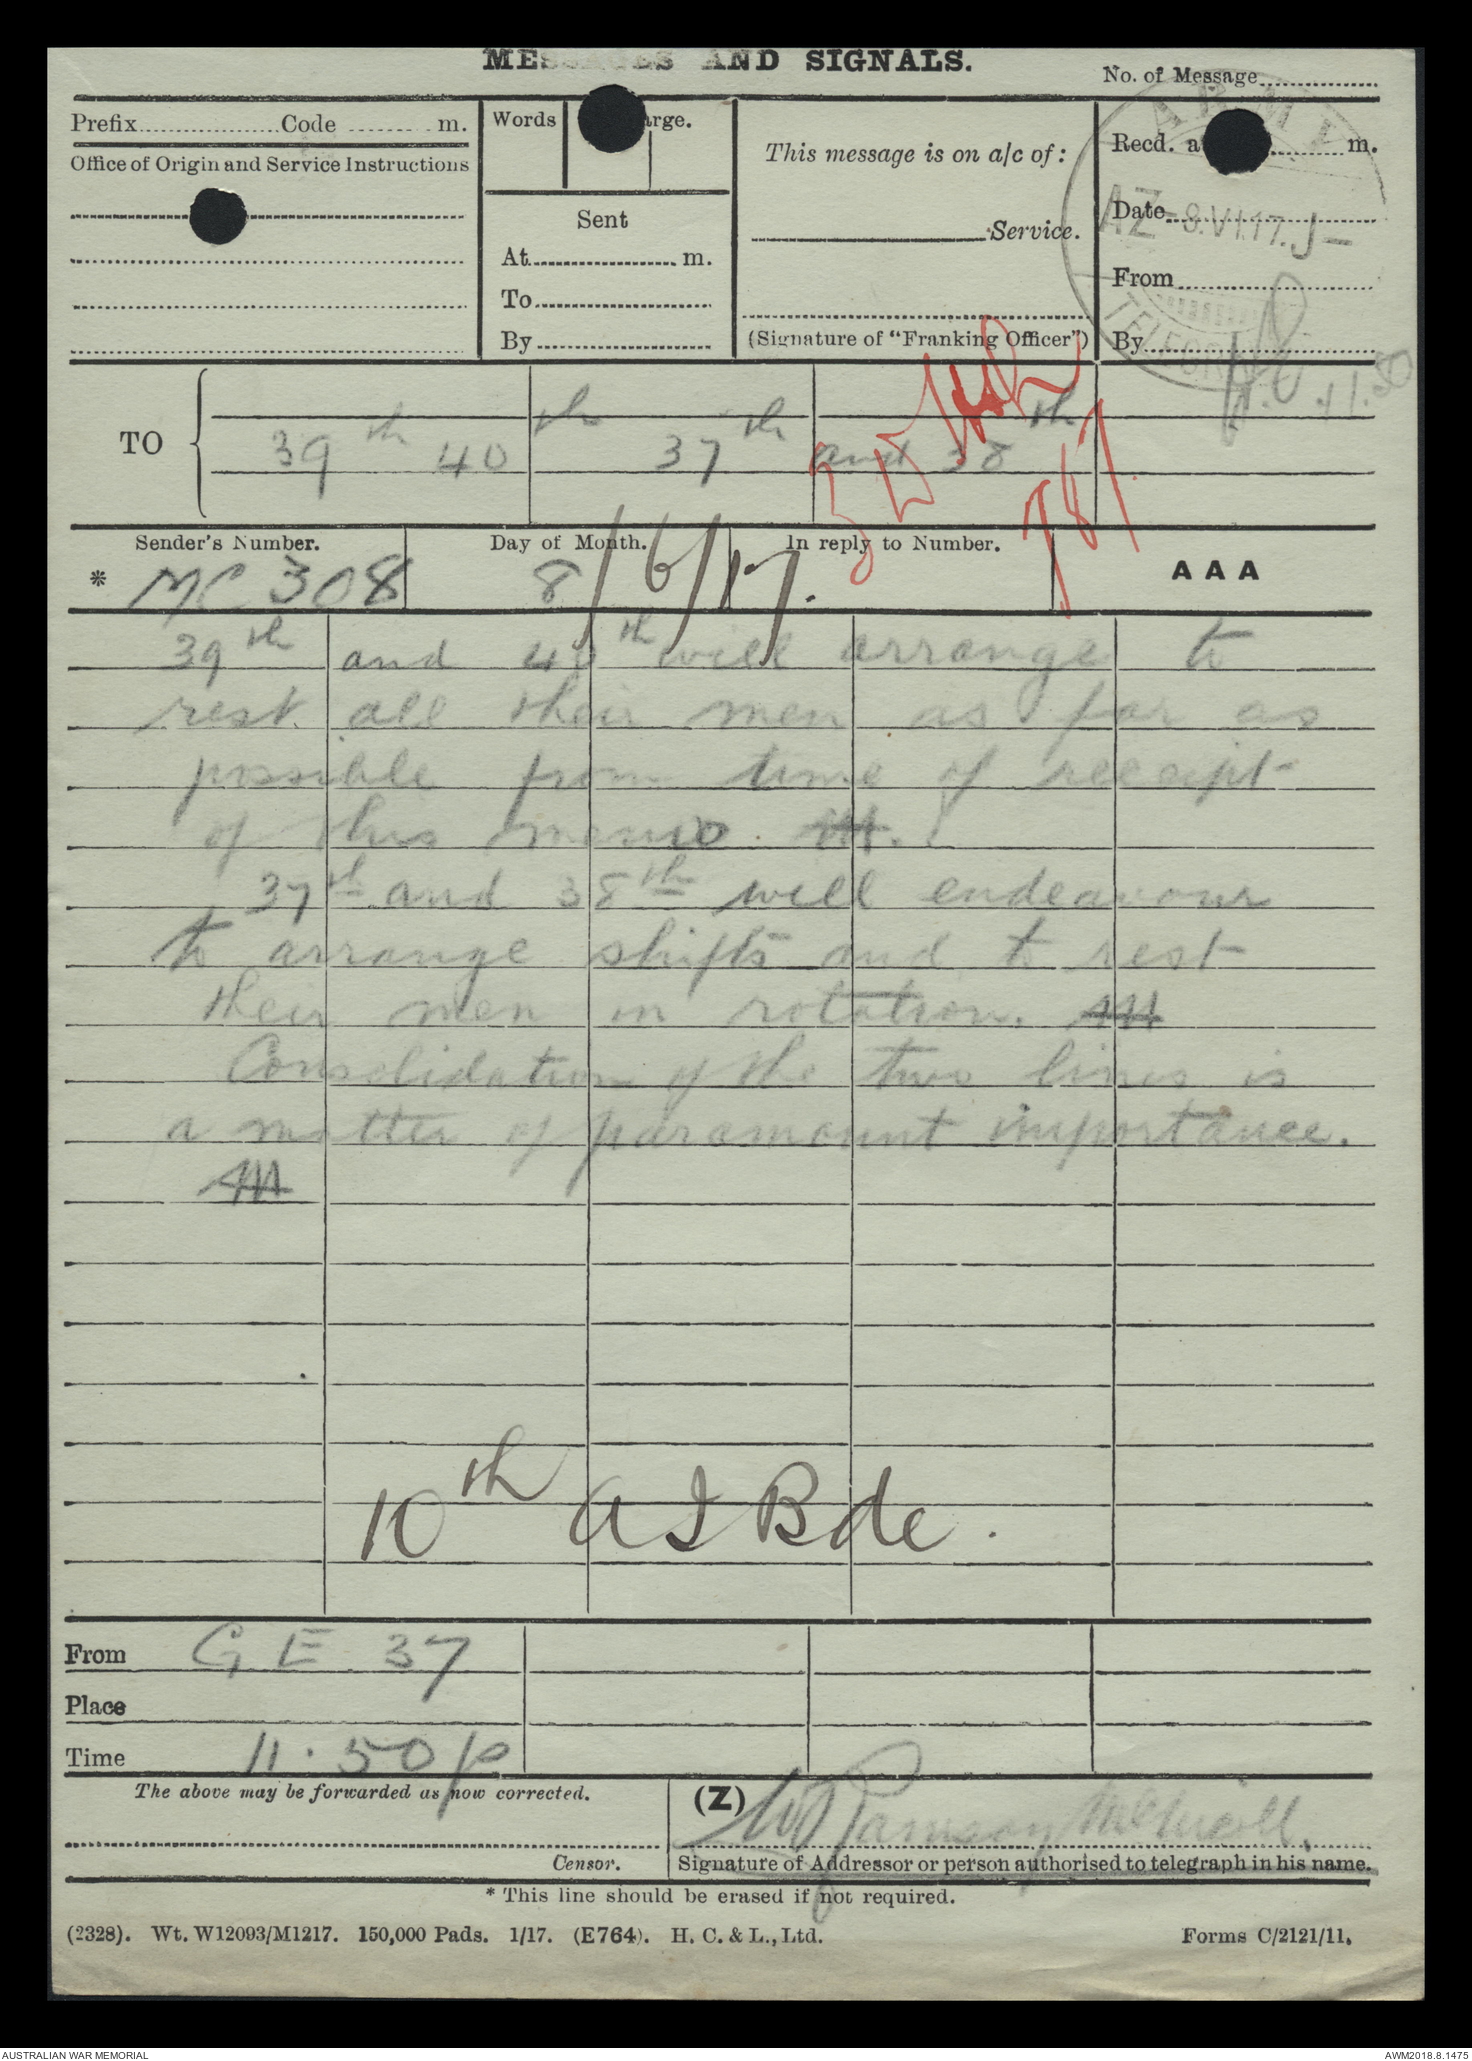 MESSAGES AND SIGNALS.
No. of Message
Prefix Code m.
Words
arge.
This message is on a/c of:
Recd. a m.
Office of Origin and Service Instructions
Sent
At m.
To
By
Service.
(Signature of "Franking Officer")
Date
From
By
ARMY
AZ - 8.VI.17. J-
TELEGRA
11.50
TO
39th 40th 37th and 38th
Sender's Number.
Day of Month.
In reply to Number.
AAA
* MC 308 8/6/17.
39th and 40th will arrange to
rest all their men as far as
possible from time of receipt
of this memo. AAA.
37th and 38th will endeavour
to arrange shifts and to rest
their men in rotation. AAA
Consolidation of the two lines is
a matter of paramount importance.
AAA
10th A I Bde.
From G E 37
Place
Time 11.50 p
The above may be forwarded as now corrected.
(Z)
W Ramsay McNicoll.
Censor.
Signature of Addressor or person authorised to telegraph in his name.
* This line should be erased if not required.
(2328). Wt. W12093/M1217. 150,000 Pads. 1/17. (E764). H. C. & L., Ltd. Forms C/2121/11.
AUSTRALIAN WAR MEMORIAL
AWM2018.8.1475